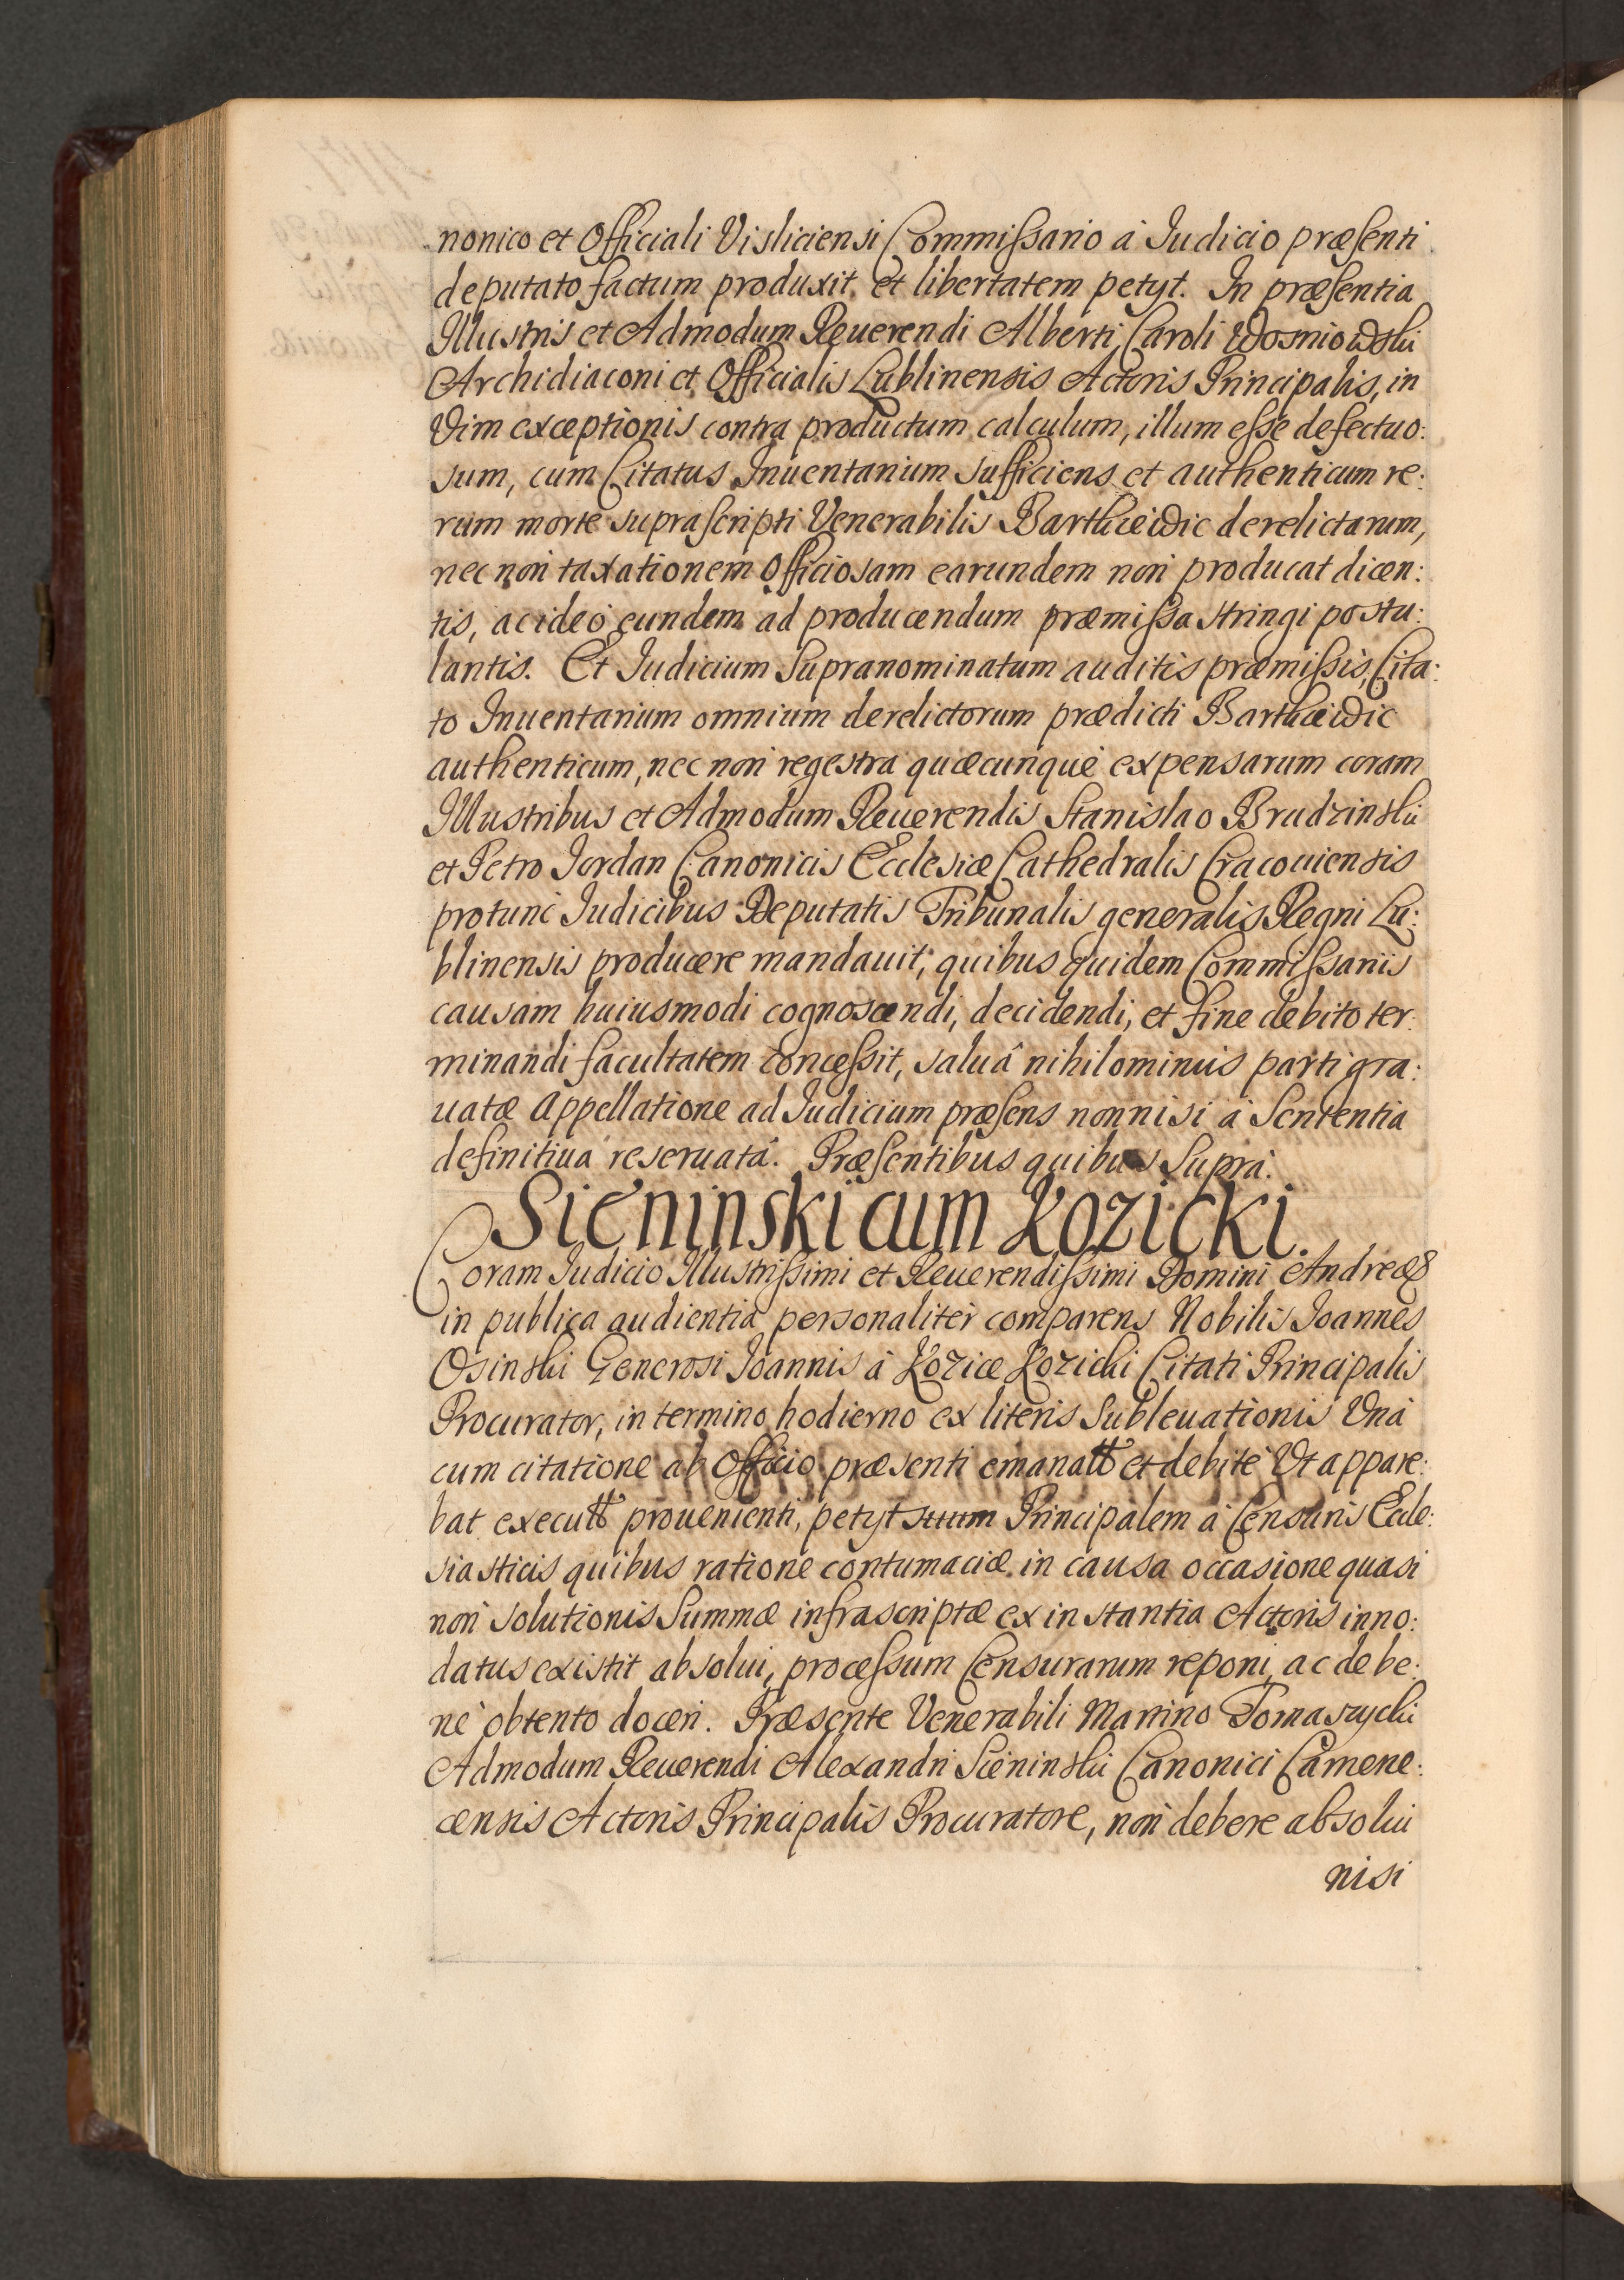 nonico et Officiali Visliciensi Commissario á Iudicio præsenti
deputato factum produxit et libertatem petyt. In præsentia
Illustris et Admodum Reuerendi Alberti Caroli Wosniowski
Archidiaconi et Officialis Lublinensis Actoris Principalis, in
Vim exceptionis contra productum calculum, illum esse defectuo:
sum, cum Citatus Inuentarium sufficiens et authenticum re:
rum morte suprascripti Venerabilis Barthæidic derelictarum,
nec non taxationem Officiosam earundem non producat dicen:
tis, ac ideò eundem ad producendum præmissa stringi postu:
lantis. Et Iudicium Supranominatum auditis præmissis, Cita:
to Inuentarium omnium derelictorum prædicti Barthæidic
authenticum, nec non regestra quæcunque expensarum coram
Illustribus et Admodum Reuerendis Stanislao Brudzinski
et Petro Jordan Canonicis Ecclesiæ Cathedralis Cracouiensis
protunc Iudicibus Deputatis Tribunalis generalis Regni Lu:
blinensis producere mandauit; quibus quidem Commissariis
causam huiusmodi cognoscendi, decidendi, et fine debito ter:
minandi facultatem concessit, saluâ nihilominus parti gra:
uatæ Appellatione ad Iudicium præsens nonnisi á Sententia
definitiua reseruatâ. Præsentibus quibus Suprà.
Sieninski cum Kozicki.
Coram Iudicio Illustrissimi et Reuerendissimi Domini Andreæ &
in publica audientia personaliter comparens Nobilis Joannes
Osinski Generosi Joannis á Kozice Kozicki Citati Principalis
Procurator, in termino hodierno ex literis Subleuationis Vnà
cum citatione ab Officio præsenti emanatt et debitè Vt appare:
bat executt prouenienti, petyt suum Principalem á Censuris Eccle:
siasticis quibus ratione contumaciæ in causa occasione quasi
non solutionis Summæ infrascriptæ ex instantia Actoris inno:
datus existit absolui, processum Censurarum reponi, ac de be:
nè obtento doceri. Præsente Venerabili Martino Tomaszycki
Admodum Reuerendi Alexandri Sieninski Canonici Camene:
censis Actoris Principalis Procuratore, non debere absolui
nisi